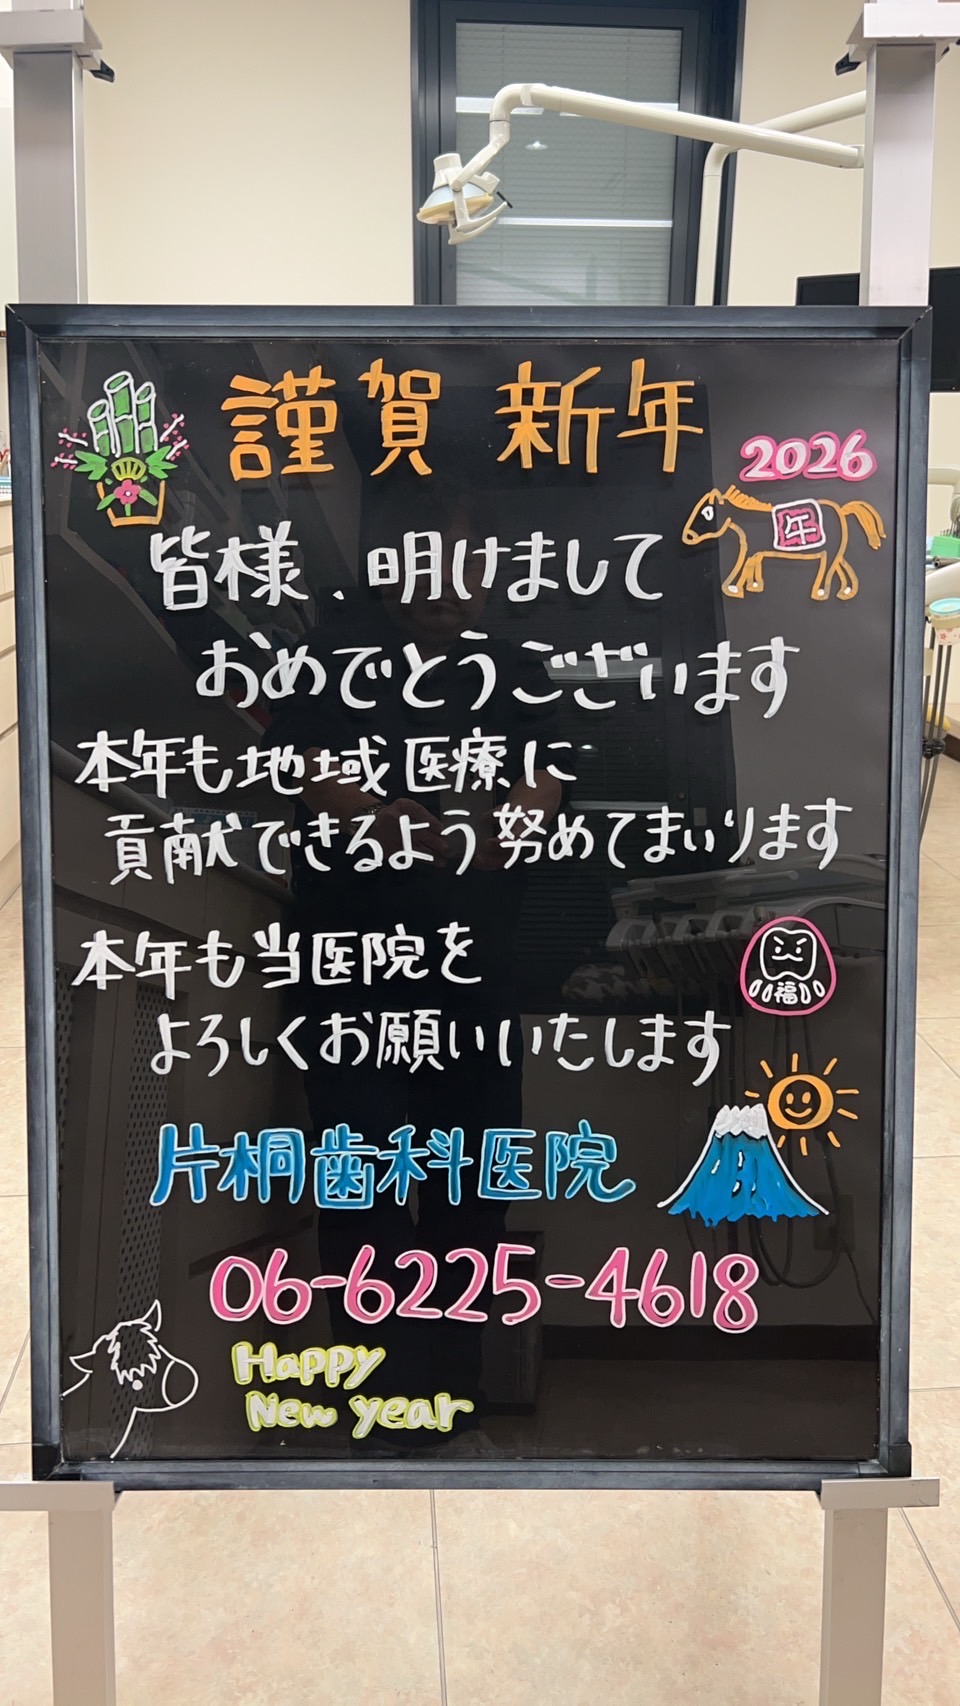 謹賀新年
2026
午
皆様、明けまして
おめでとうございます
本年も地域医療に
貢献できるよう努めてまいります
本年も当医院を
よろしくお願いいたします
福
片桐歯科医院
06-6225-4618
Happy
New year